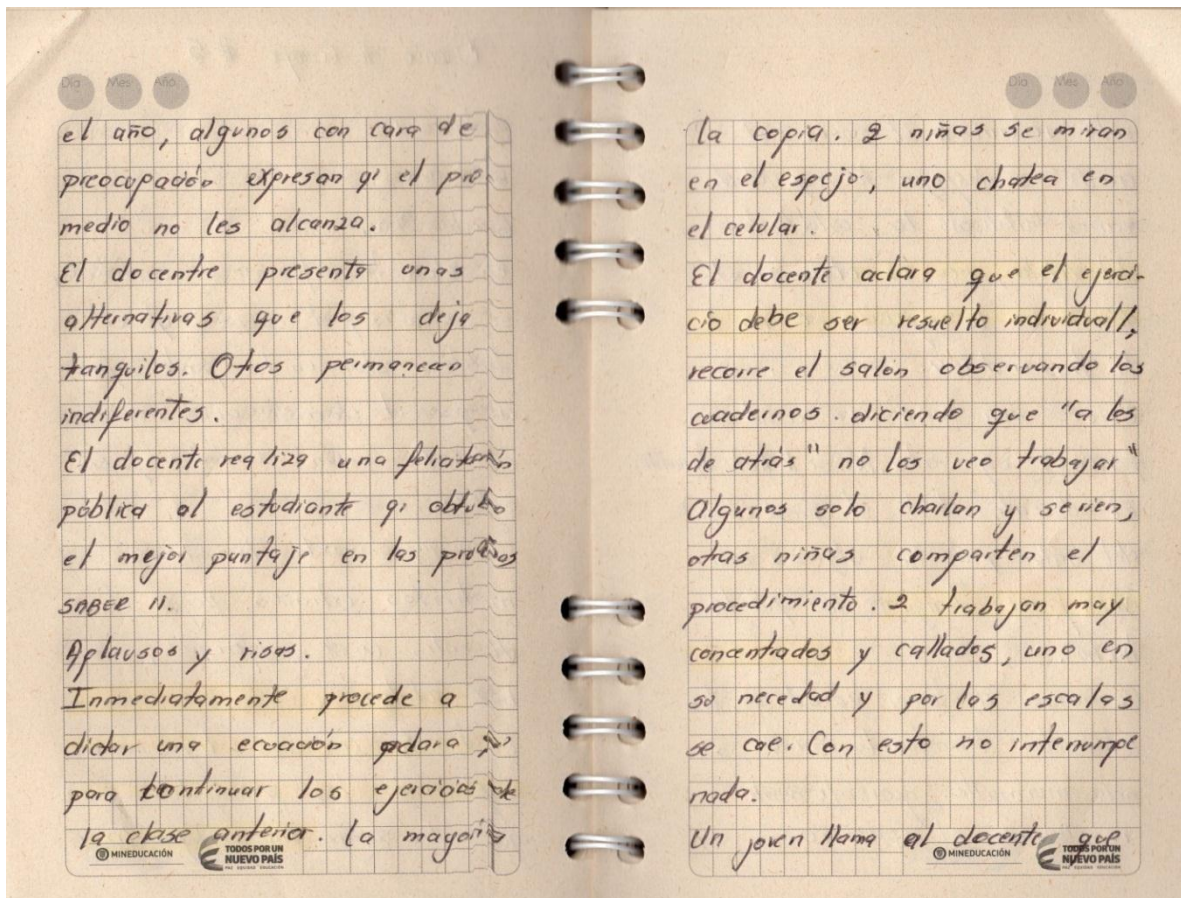 Día Mes Año
el año, algunos con cara de
preocupación expresan qi el pro
medio no les alcanza.
El docentre presenta unas
alternativas que los deja
tranquilos. Otros permanecen
indiferentes.
El docente realiza una felicitación
pública al estudiante qi obtubo
el mejor puntaje en las pruebas
SABER 11.
Aplausos y risas.
Inmediatamente procede a
dictar una ecuación aclara
para continuar los ejercicios de
la clase anterior. la mayoría
MINEDUCACIÓN
TODOS POR UN
NUEVO PAÍS
PAZ EQUIDAD EDUCACIÓN
Día Mes Año
la copia. 2 niñas se miran
en el espejo, uno chatea en
el celular.
El docente aclara que el ejerci-
cio debe ser resuelto individuall,
recorre el salón observando los
cuadernos. diciendo que "a los
de atrás" no los veo trabajar"
Algunos solo charlan y se rien,
otras niñas comparten el
procedimiento. 2 trabajan muy
concentrados y callados, uno en
su necedad y por las escalas
se cae. Con esto no interrumpe
nada.
Un joven llama al docente que
MINEDUCACIÓN
TODOS POR UN
NUEVO PAÍS
PAZ EQUIDAD EDUCACIÓN